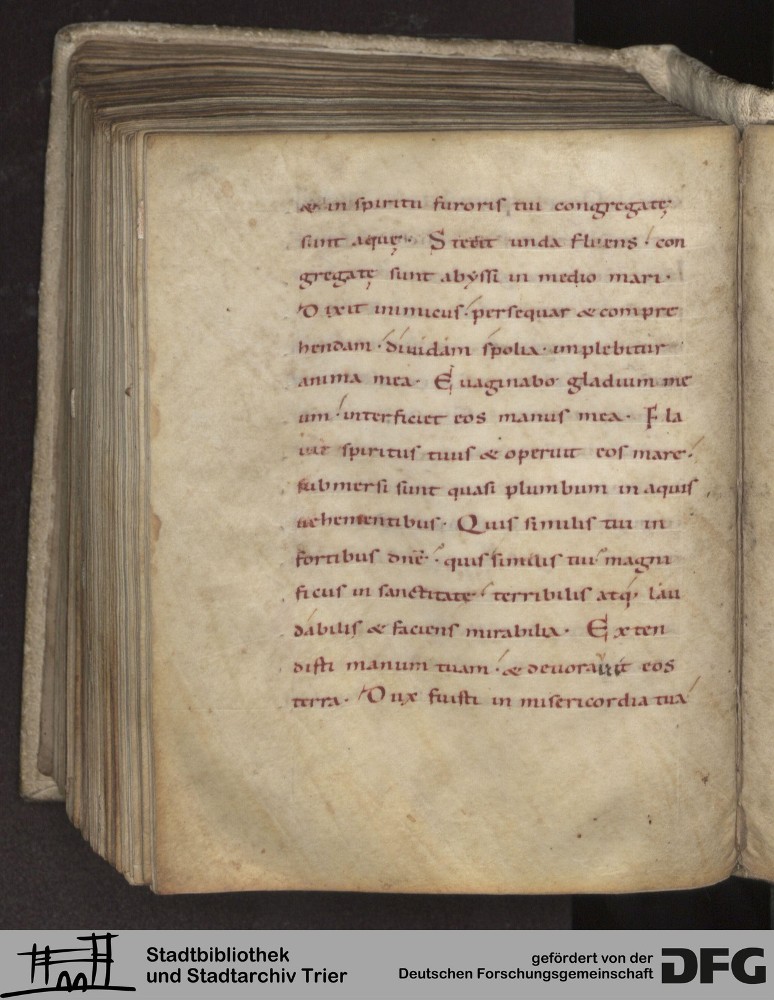 & in spiritu furoris tui congregatę
sunt aquę. Stetit unda fluens. con
gregatę sunt abyssi in medio mari.
Dixit inimicus. persequar & compre
hendam. diuidam spolia. implebitur
anima mea. Euaginabo gladium me
um. interficiet eos manus mea. Fla
uit spiritus tuus & operuit eos mare.
submersi sunt quasi plumbum in aquis
uehementibus. Quis similis tui in
fortibus dnē. quis similis tui magni
ficus in sanctitate. terribilis atq; lau
dabilis & faciens mirabilia. Exten
disti manum tuam. & deuorauit eos
terra. Dux fuisti in misericordia tua
Stadtbibliothek
und Stadtarchiv Trier
gefördert von der
Deutschen Forschungsgemeinschaft
DFG